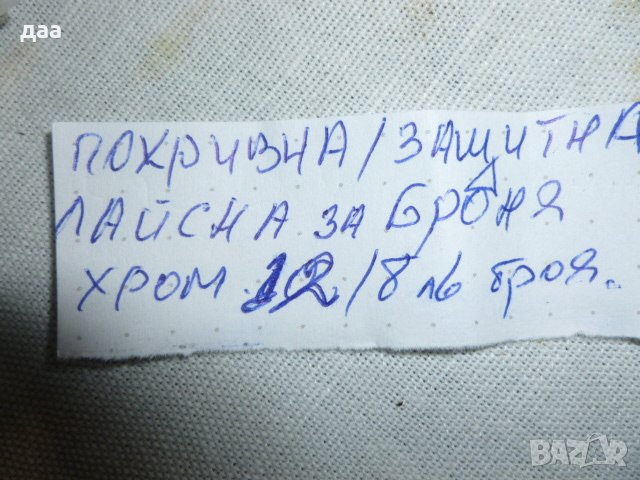 даа
ПОКРИВНА / ЗАЩИТНА
ЛАЙСНА ЗА БРОНЯ
ХРОМ. 12 / 8 лв броя.
BAZAR